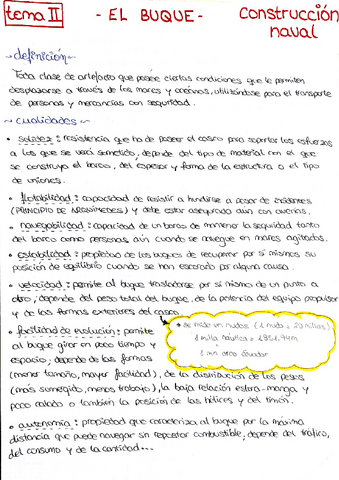 tema II - EL BUQUE - construcción
naval
definición
Toda clase de artefacto que posee ciertas condiciones que le permiten
desplazarse a través de los mares y océanos, utilizándose para el transporte
de personas y mercancías con seguridad.
cualidades
• solidez: resistencia que ha de poseer el casco para soportar los esfuerzos
a los que se verá sometido, depende del tipo de material con el que
se construya el barco, del espesor y forma de la estructura o el tipo
de uniones.
• flotabilidad: capacidad de resistir a hundirse a pesar de incidentes
(PRINCIPIO DE ARQUÍMEDES) y debe estar asegurada aún con averías.
• navegabilidad: capacidad de un barco de mantener la seguridad tanto
del barco como personas aún cuando se navegue en mares agitados.
• estabilidad: propiedad de los buques de recuperar por sí mismos su
posición de equilibrio cuando se han escorado por alguna causa.
• velocidad: permite al buque trasladarse por sí mismo de un punto a
otro, depende del peso total del buque, de la potencia del equipo propulsor
y de las formas exteriores del casco
• facilidad de evolución: permite
al buque girar en poco tiempo y
espacio, depende de las formas
(menor tamaño, mayor facilidad), de la distribución de los pesos
(más sumergido, menos trabajo), la baja relación eslora-manga y
poco calado o también la posición de las hélices y del timón.
* se mide en nudos (1 nudo =
1 milla náutica =
• autonomía: propiedad que caracteriza al buque por la máxima
distancia que puede navegar sin repostar combustible, depende del tráfico,
del consumo y de la cantidad...